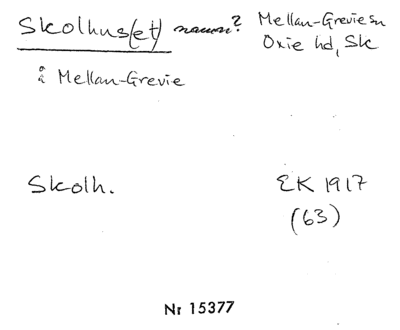 Skolhus(et) namn? Mellan-Grevie sn
Oxie hd, Sk
å Mellan-Grevie
Skolh. EK 1917
(63)
Nr 15377